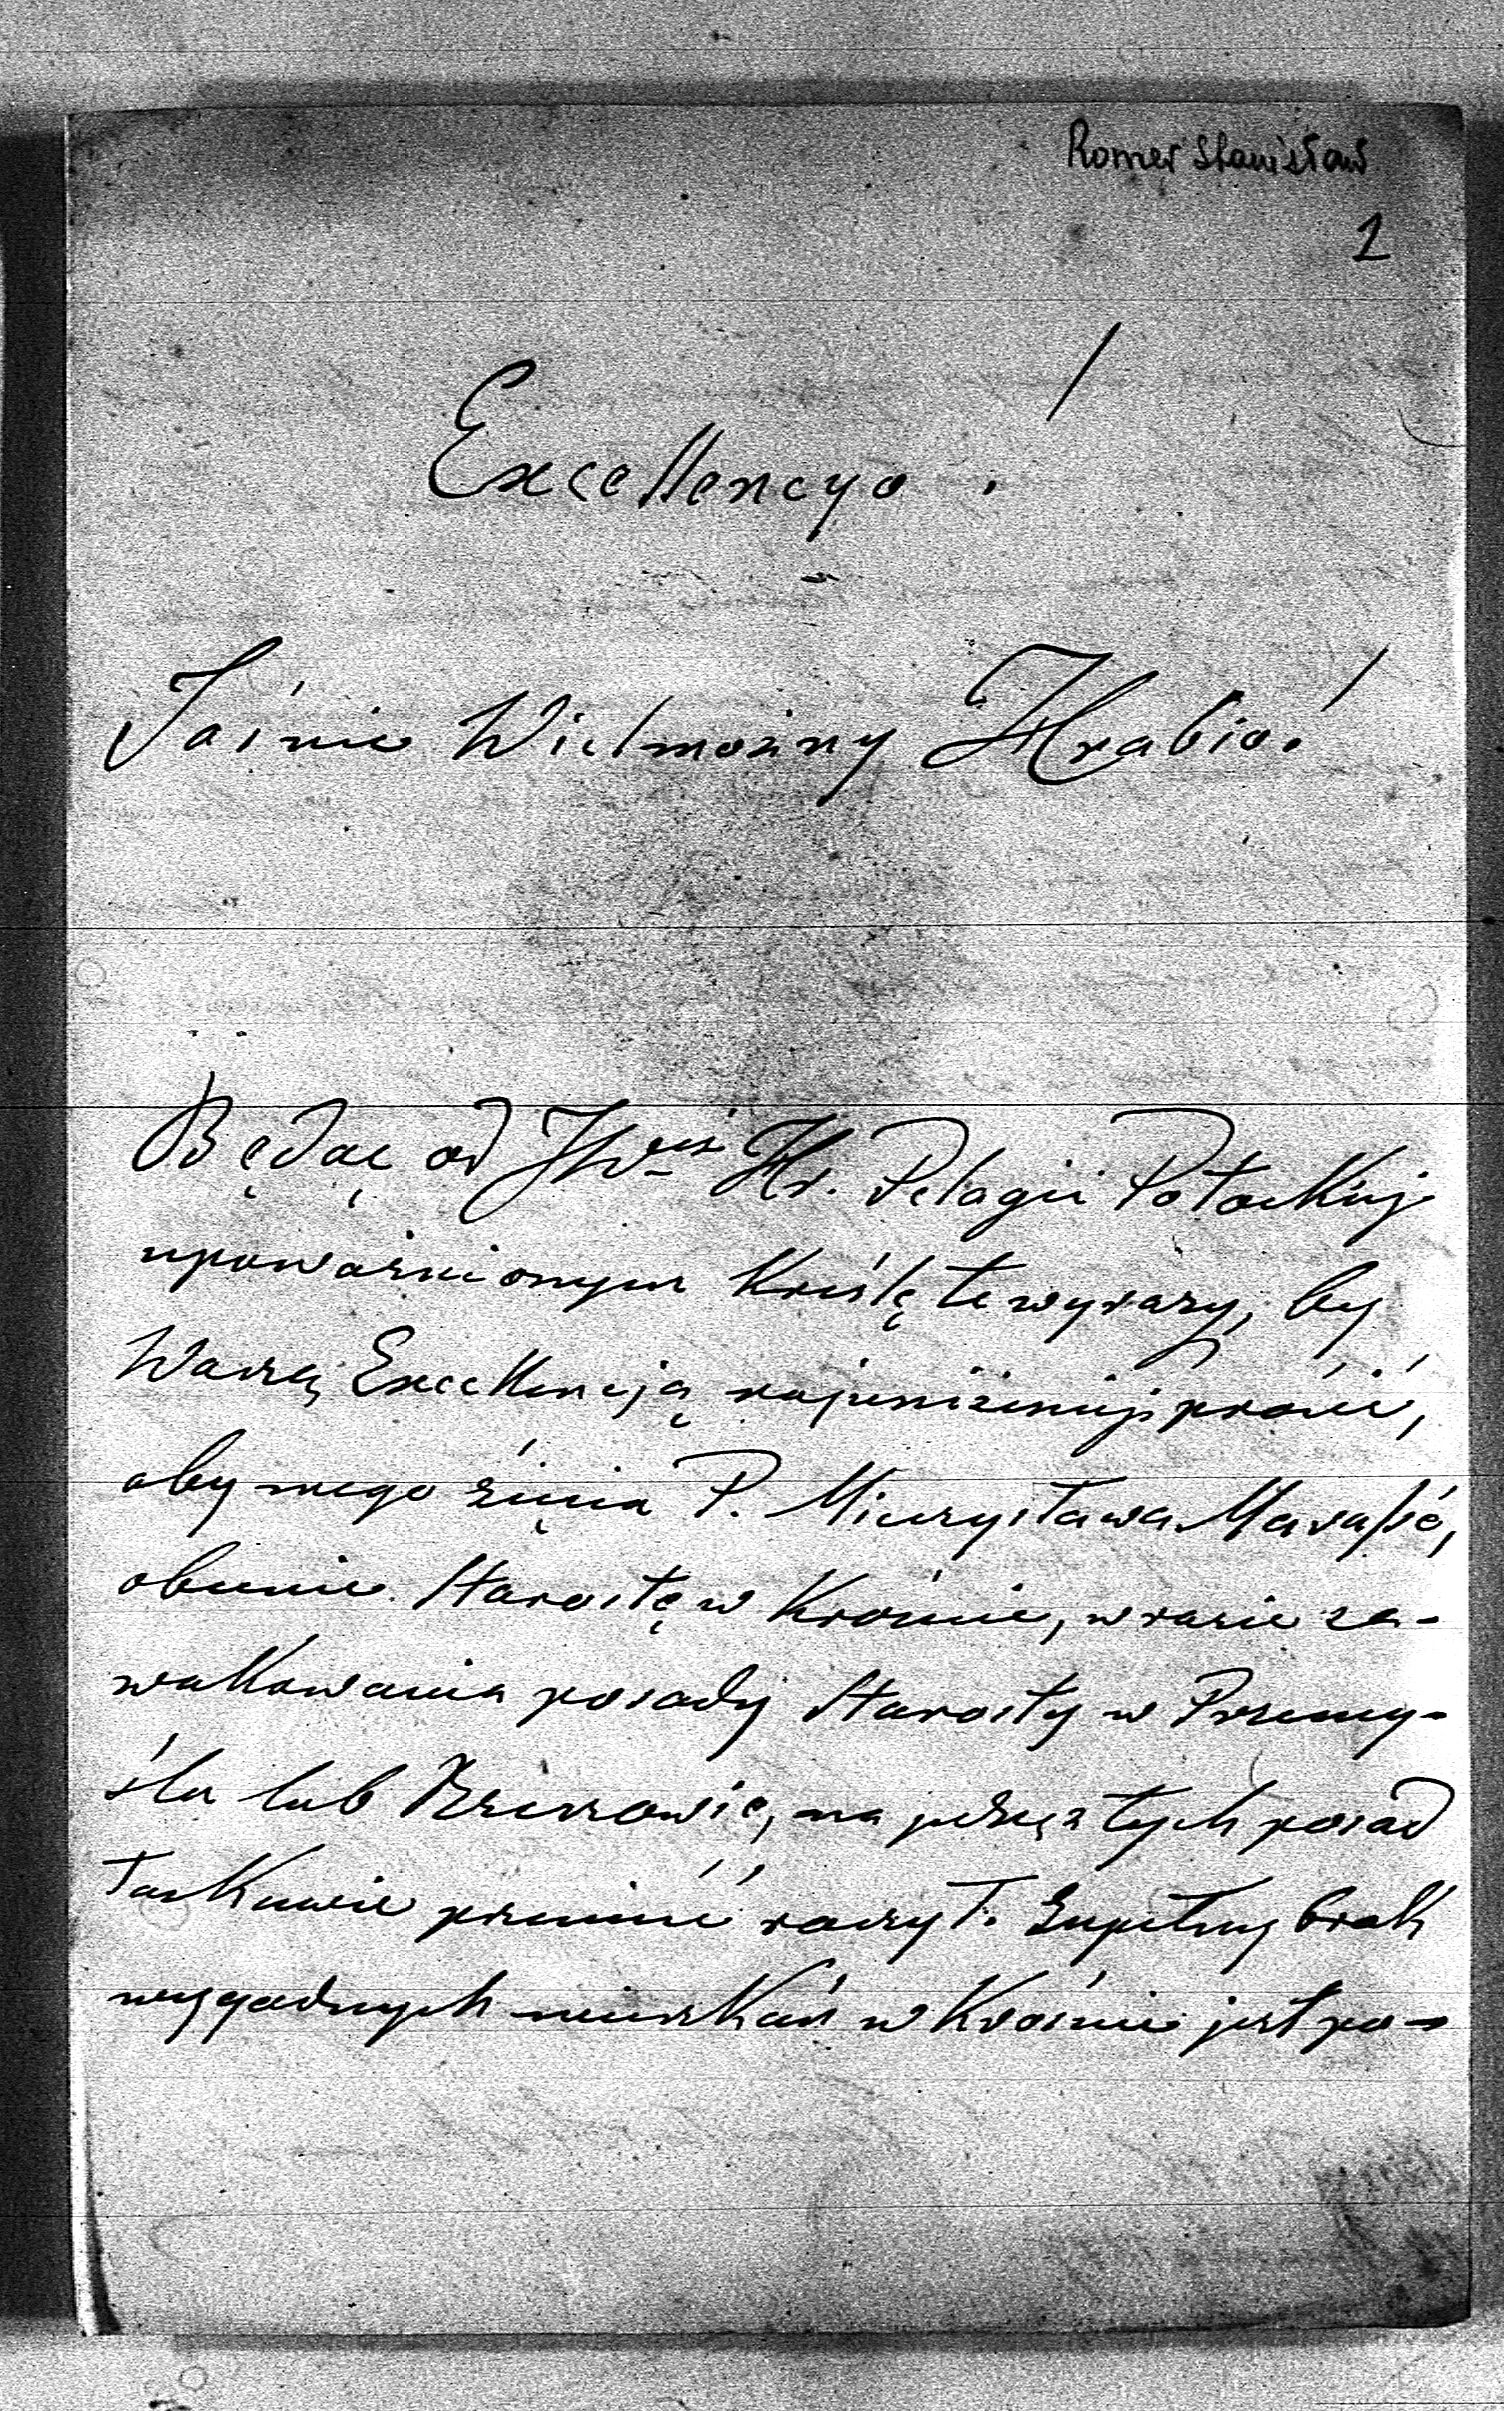 Romer Stanisław
1
Excellencyo!
Jaśnie Wielmożny Hrabio!
Będąc od JWnéj Hr. Pelagii Potockiej
upoważnionym kreślę te wyrazy, by
Waszą Excellencją najuniżeniej prosić,
aby mego zięcia P. Mieczysława Marassé,
obecnie Starostę w Krośnie, w razie za-
wakowania posady Starosty w Przemy-
ślu lub Rzeszowie, na jedną z tych posad
łaskawie przenieść raczył. Zupełny brak
wygodnych mieszkań w Krośnie jest po-